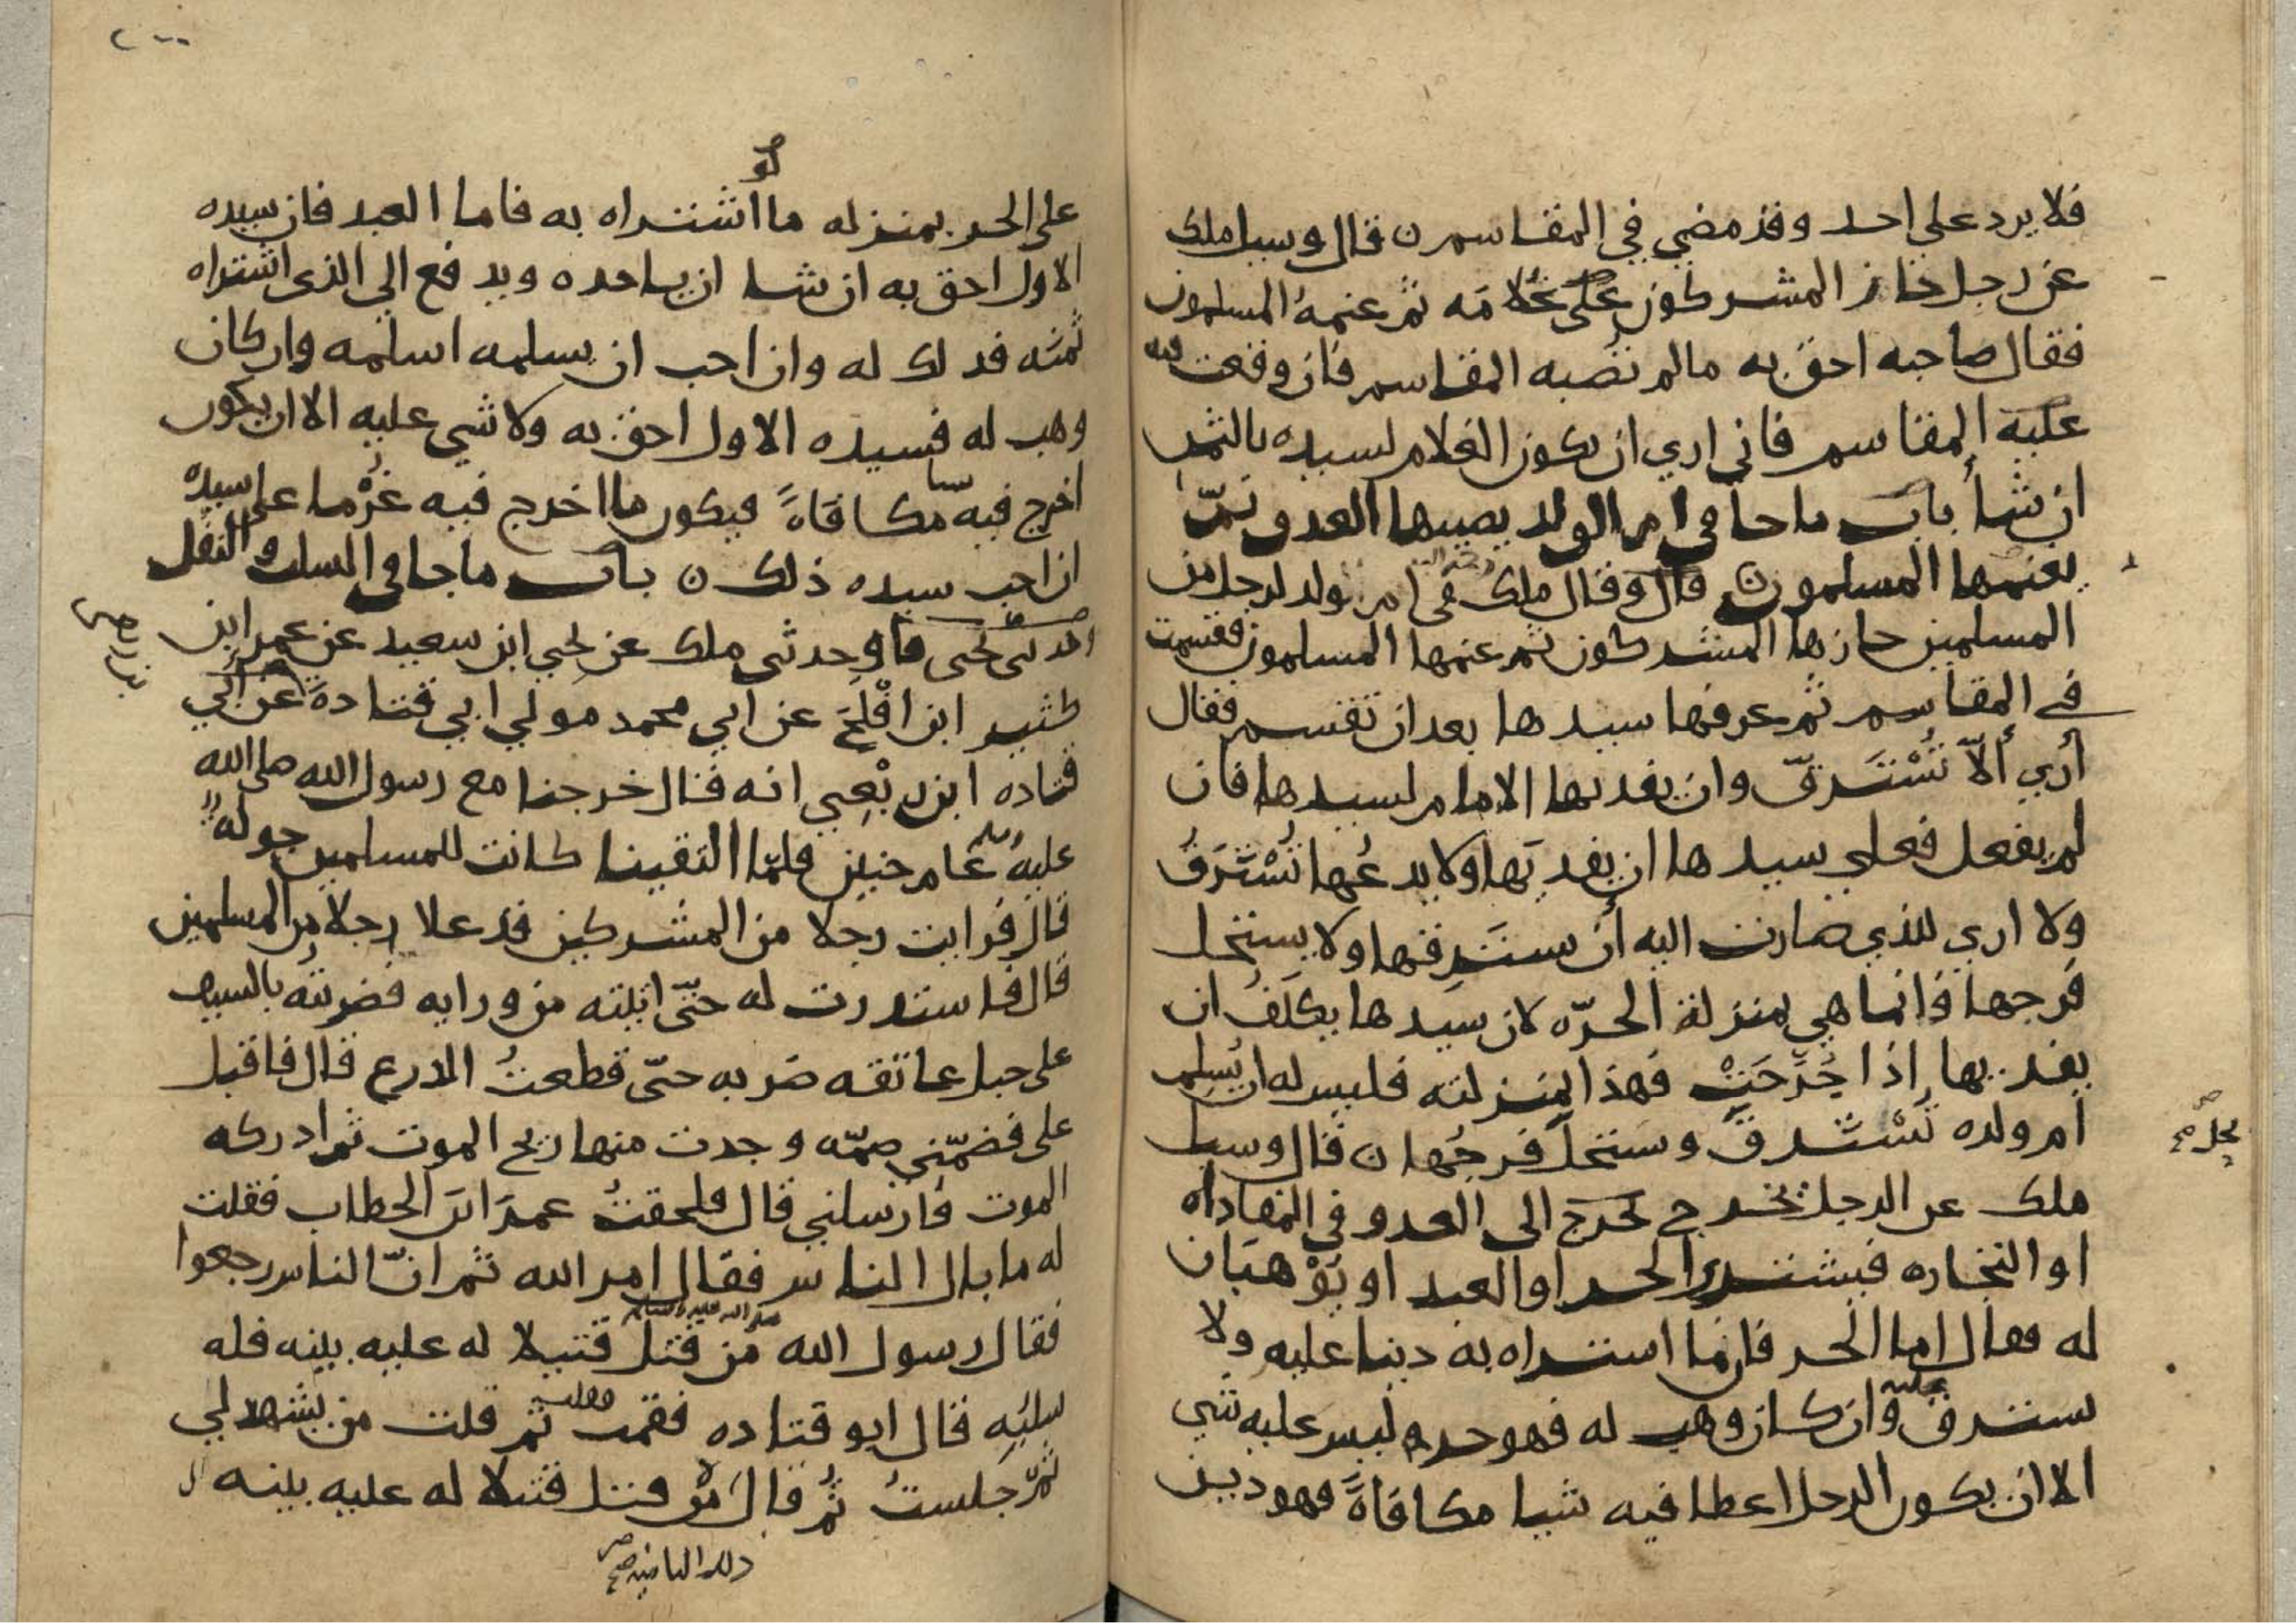 فلا يرد علي احد وقد مضي في المقاسم ن قال وسيل ملك
عن رجل حاز المشركون علي غلامه ثم غنمه المسلمون
فقال صاحبه احق به مالم تصبه المقاسم فان وقعت فيه
عليه المقاسم فاني اري ان يكون الغلام لسيده بالثمن
ان شأ باب ماجا في ام الولد يصيبها العدو ثمّ
يغنمها المسلمون قال وقال ملك في ام ولد لرجل من
المسلمين حازها المشركون ثم غنمها المسلمون فقسمت
في المقاسم ثم عرفها سيدها بعد ان تقسم فقال
أري ألاّ تُسْتَرقّ وان يفديها الامام لسيدها فان
لم يفعل فعلي سيدها ان يفديَها ولا يدعُها تُسْتَرَقُ
ولا اري للذي صارت اليه أن يسترقها ولا يستحل
فرجها فانما هي بمنزلة الحرّه لان سيدها يكلف ان
يفديها اذا جُرِحَتْ فهذا بمنزلته فليس له ان يُسلِم
ام ولده تُسْترقّ ويستحلّ فرجُها ن قال وسيل
يحل صح
ملك عن الرجل يخرج الي العدو في المفاداه
او التجاره فيشتري الحر او العبد او يُوْهبَان
له فقال اما الحر فان ما اشتراه به دينا عليه ولا
يسترق وان كان وهب له فهو حر وليس عليه شي
عليه
الا ان يكون الرجل اعطا فيه شيا مكافاةً فهو دين
٢٠٠
لو
علي الحر بمنزله ما اشتراه به فاما العبد فان سيده
الاول احق به ان شا ان ياخده ويدفع الي الذي اشتراه
ثمنَه فدلك له وان احب ان يسلمه اسلمه وان كان
وهب له فسيده الاول احق به ولا شي عليه الا ان يكون
اخرج فيه شيا مكافاةً فيكون ما اخرج فيه غُرْما علي سيده
ان احب سيده ذلك ن باب ماجا في السلب والنفل
حدثني يحيي قال وحدثني ملك عن يحيي ابن سعيد عن عمر ابن
كثير ابن افْلَحَ عن ابي محمد مولي ابي قتادة عن ابي
قتاده ابن ربْعِيي انه قال خرجنا مع رسول الله صلي الله
عليه وسلم عام حنين فلمّا التقينا كانت للمسلمين جوله
قال فرايت رجلا من المشركين قد علا رجلا من المسلمين
قال فاستدرت له حتّي اتيته من ورايه فضربتُه بالسيف
علي حبل عاتقه ضربه حتّي قطعتُ الدرع قال فاقبل
علي فضمّني ضمّه وجدت منها ريح الموت ثم ادركه
الموت فأرسلني قال فلحقتُ عمرَ ابنَ الخطاب فقلت
له ما بال الناس فقال امر الله ثم انّ الناس رجعوا
فقال رسول الله صلي الله عليه وسلم من قتل قتيلا له عليه بينه فله
سلبُه قال ابو قتاده فقمت ثم قلت من يشهد لي
ثم جلستُ ثم قال من قتل قتيلا له عليه بينه